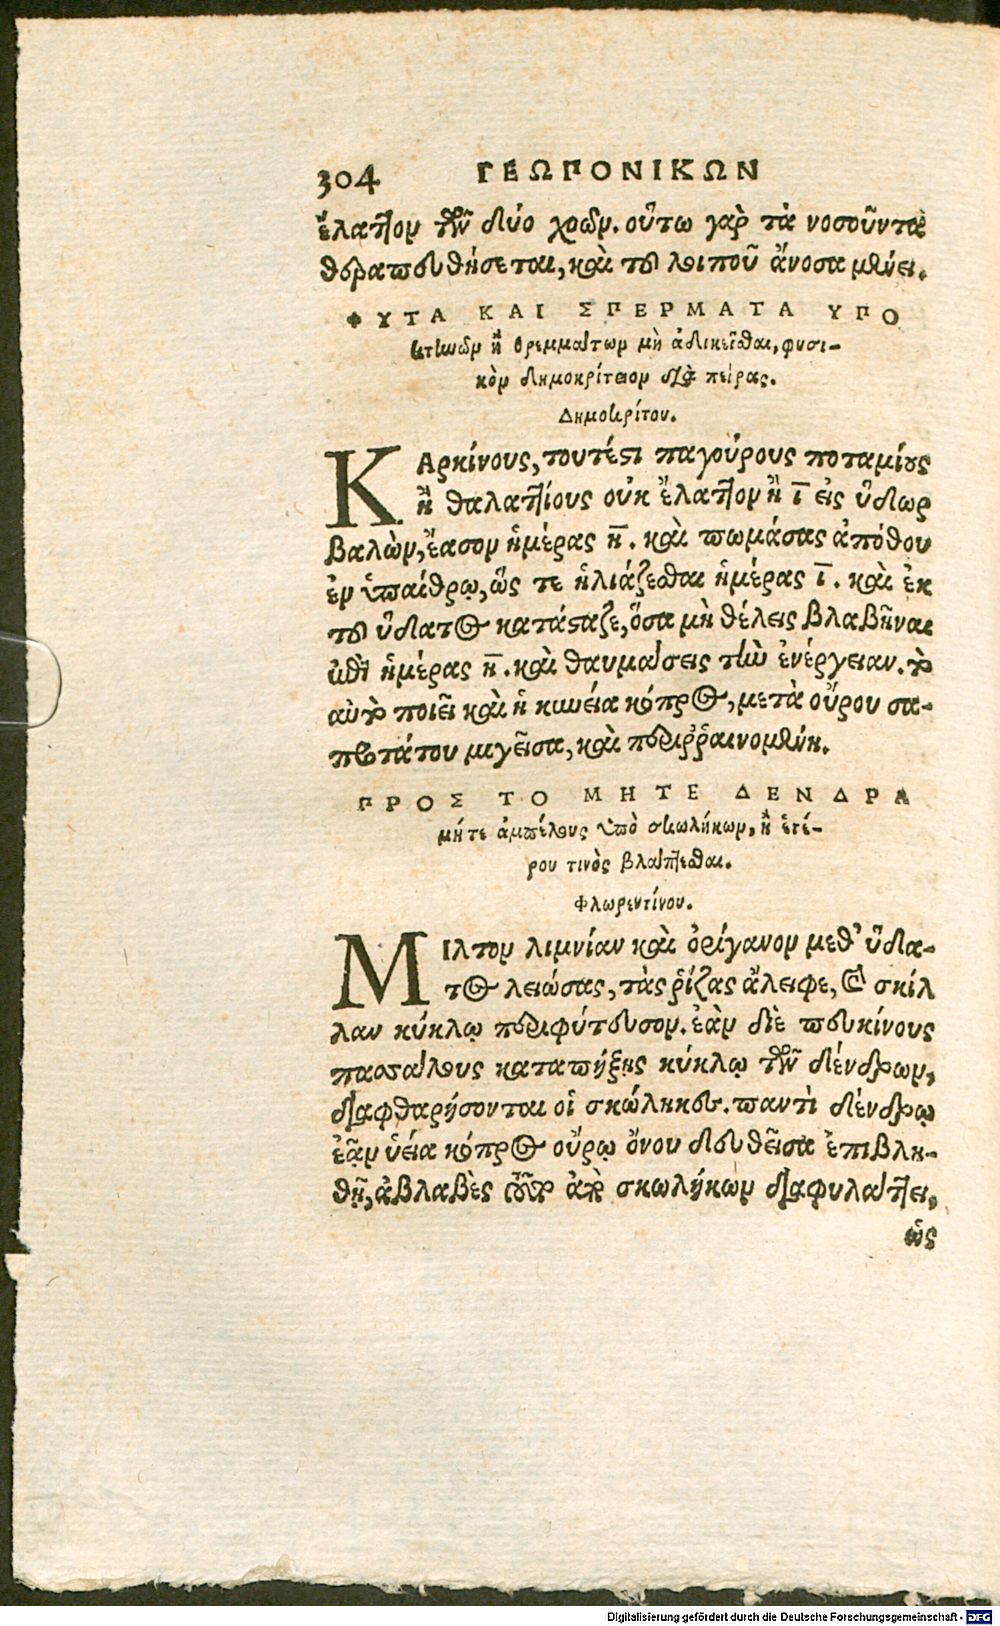 304 ΓΕΩΠΟΝΙΚΩΝ
ἔλαττον τῶν δύο χοῶν. οὕτω γὰρ τὰ νοσοῦντα
θεραπευθήσεται, καὶ τοῦ λοιποῦ ἄνοσα μένει.
ΦΥΤΑ ΚΑΙ ΣΠΕΡΜΑΤΑ ΥΠΟ
κτηνῶν ἢ θρεμμάτων μὴ ἀδικεῖσθαι, φυσι-
κὸν δημοκρίτειον διὰ πείρας.
Δημοκρίτου.
ΚΑρκίνους, τουτέστι παγούρους ποταμίους
ἢ θαλαττίους οὐκ ἔλαττον ἢ ι̅ εἰς ὕδωρ
βαλὼν, ἔασον ἡμέρας η̅. καὶ πωμάσας ἀπόθου
ἐν ὑπαίθρῳ, ὥς τε ἡλιάζεσθαι ἡμέρας ι̅. καὶ ἐκ
τοῦ ὕδατος κατάσταζε, ὅσα μὴ θέλεις βλαβῆναι
ἐπὶ ἡμέρας η̅. καὶ θαυμάσεις τὴν ἐνέργειαν. τὸ
αὐτὸ ποιεῖ καὶ ἡ κυνεία κόπρος, μετὰ οὔρου σα-
πεντάτου μιγεῖσα, καὶ περιῤῥαινομένη.
ΠΡΟΣ ΤΟ ΜΗΤΕ ΔΕΝΔΡΑ
μήτε ἀμπέλους ὑπὸ σκωλήκων, ἢ ἑτέ-
ρου τινὸς βλάπτεσθαι.
Φλωρεντίνου.
ΜΙλτον λιμνίαν καὶ ὀρίγανον μεθ' ὕδα-
τος λειώσας, τὰς ῥίζας ἄλειφε, καὶ σκίλ
λαν κύκλῳ περιφύτευσον. ἐὰν δὲ πευκίνους
πασσάλους καταπήξῃς κύκλῳ τῶν δένδρων,
διαφθαρήσονται οἱ σκώληκες. παντὶ δένδρῳ
ἐᾲν ὑεία κόπρος οὔρῳ ὄνου δευθεῖσα ἐπιβλη-
θῇ, ἀβλαβὲς τοῦτο ἀπὸ σκωλήκων διαφυλάττει,
ὡς
Digitalisierung gefördert durch die Deutsche Forschungsgemeinschaft - DFG